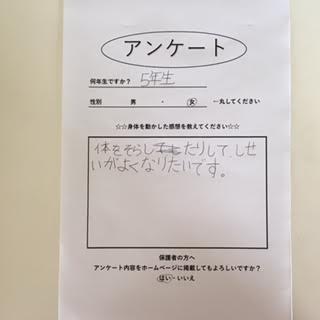 アンケート
何年生ですか? 5年生
性別 男 ・ 女 ←丸してください
☆☆身体を動かした感想を教えてください☆☆
体をそらしたりして、しせ
いがよくなりたいです。
保護者の方へ
アンケート内容をホームページに掲載してもよろしいですか?
はい・いいえ